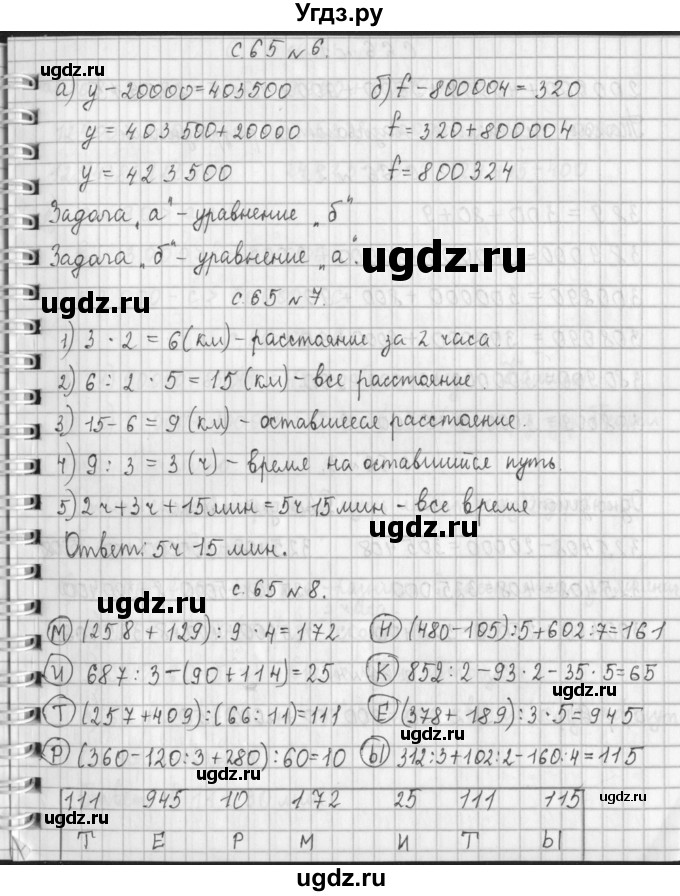 Угдз.ру
с.65 №6.
ugdz.ru
ugdz.ru
а) y-20000=403500 б) f-800004=320
y=403500+20000 f=320+800004
y=423500 f=800324
ugdz.ru
Задача „а" - уравнение „б"
Задача „б" - уравнение „а".
ugdz.ru
ugdz.ru
с.65 №7.
1) 3 · 2 = 6 (км) - расстояние за 2 часа.
2) 6 : 2 · 5 = 15 (км) - все расстояние
ugdz.ru
3) 15 - 6 = 9 (км) - оставшееся расстояние.
4) 9 : 3 = 3 (ч) - время на оставшийся путь.
ugdz.ru
5) 2ч+3ч+15мин=5ч15мин - все время
ugdz.ru
Ответ: 5ч 15мин.
с.65 №8.
ugdz.ru
М (258 + 129) : 9 · 4 = 172 Н (480-105):5+602:7=161
И 687 : 3 - (90+114) = 25 К 852:2-93·2-35·5=65
ugdz.ru
Т (257+409):(66:11)=111 Е (378+189):3·5=945
ugdz.ru
Р (360-120:3+280):60=10 Ы 312:3+102:2-160:4=115
ugdz.ru
111 945 10 172 25 111 115
ugdz.ru
Т Е Р М И Т Ы
ugdz.ru